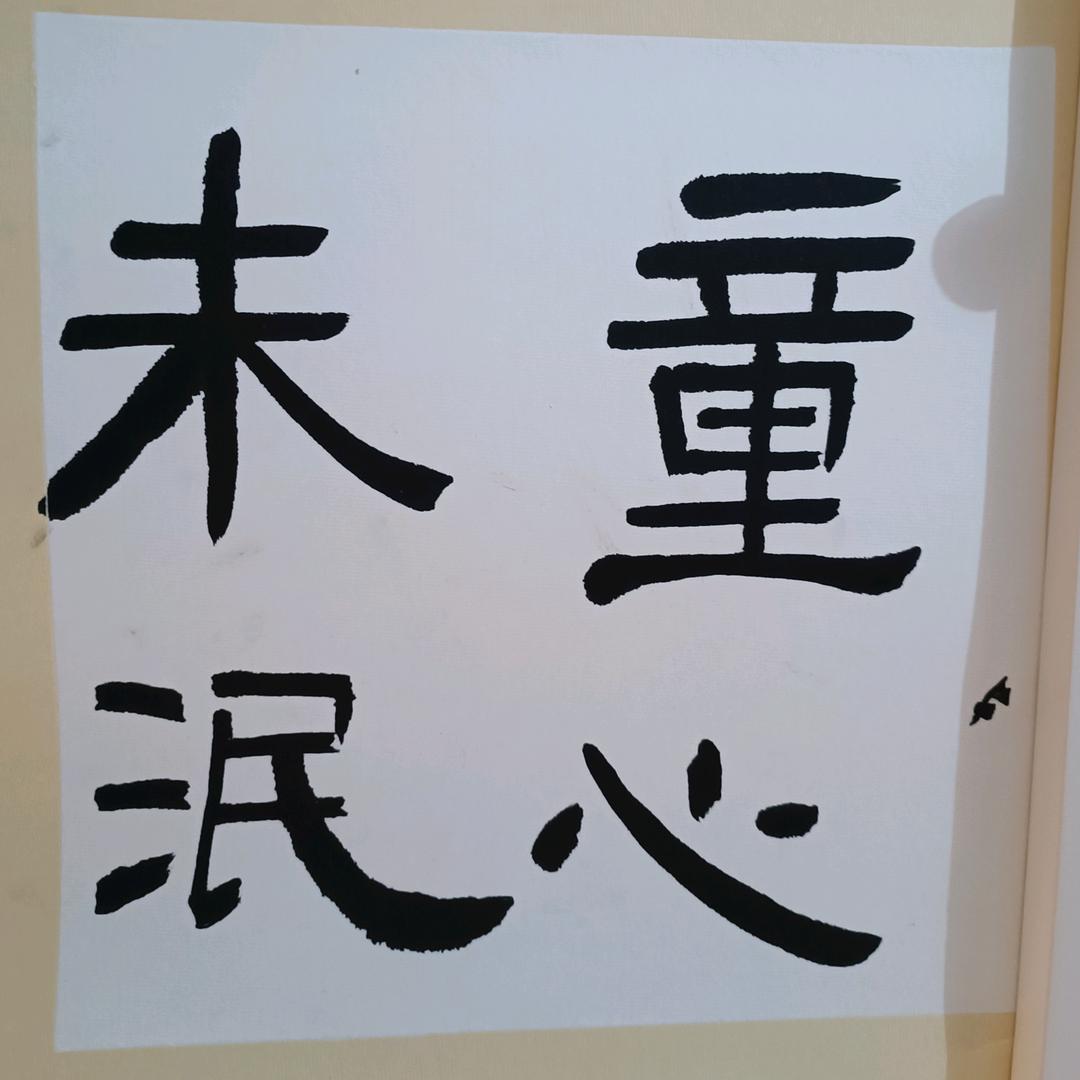 童心
未泯